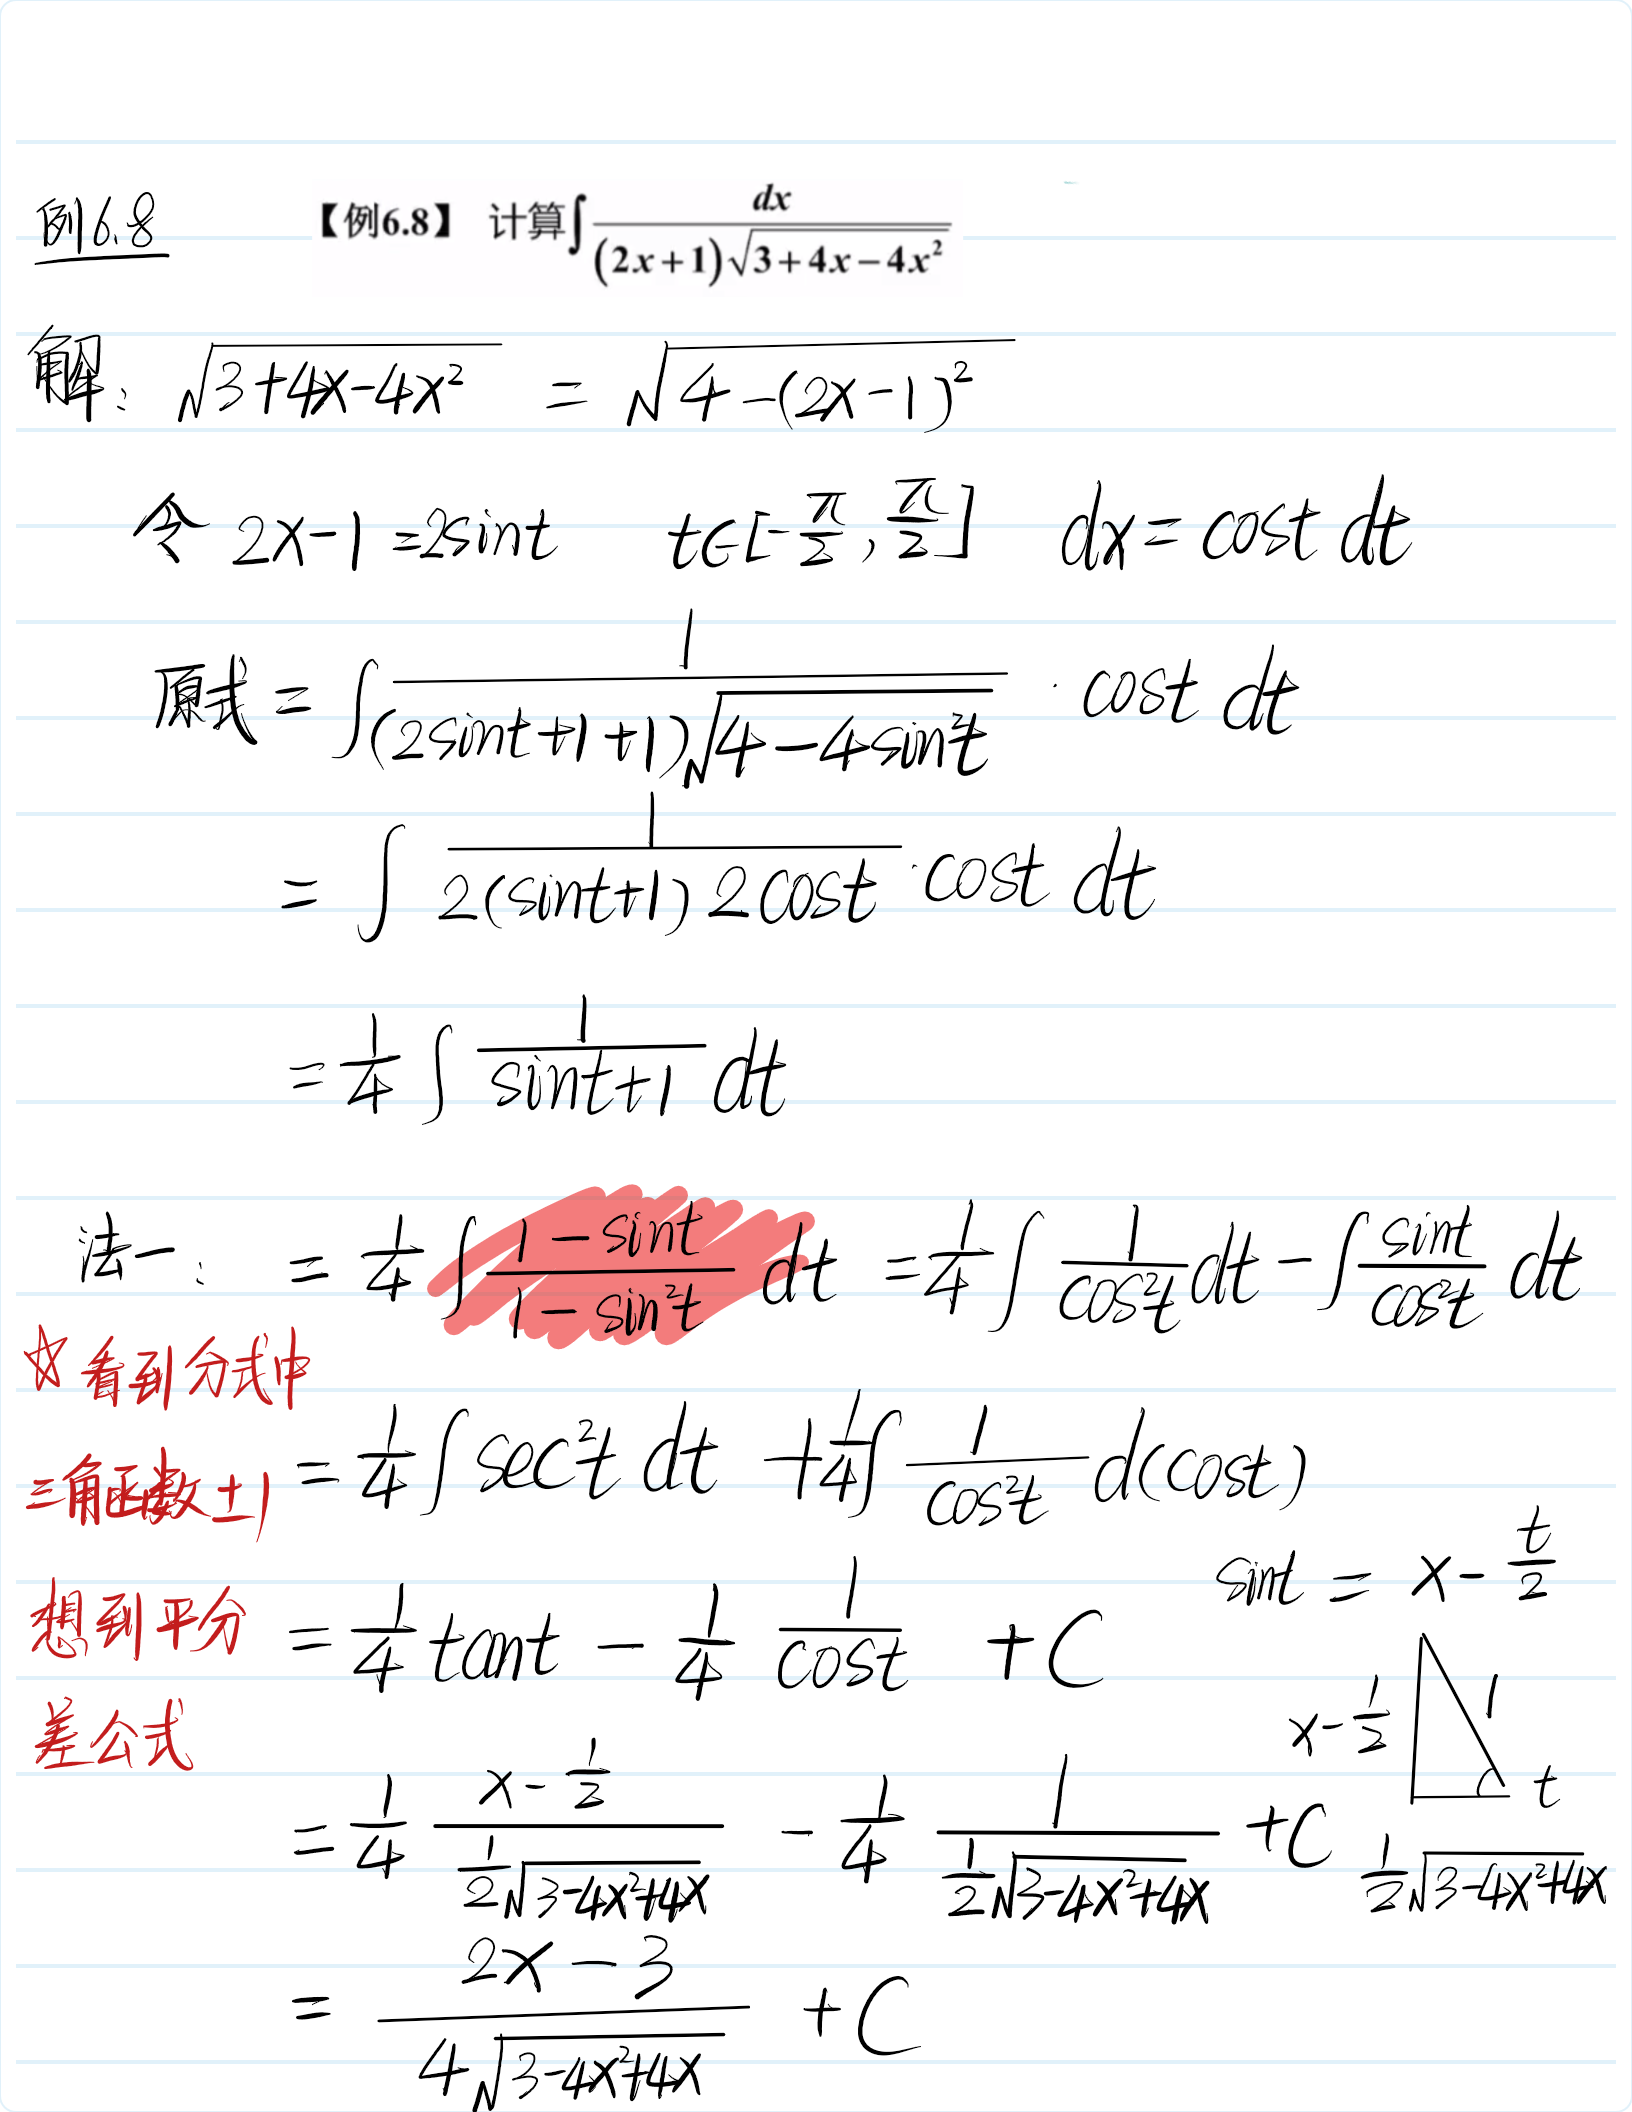 例6.8 【例6.8】 计算∫dx/((2x+1)√(3+4x−4x²))
解: √(3+4x-4x²) = √(4-(2x-1)²)
令 2x-1=2sint t∈[-π/2, π/2] dx=cost dt
原式 = ∫1/((2sint+1+1)√(4-4sin²t)) · cost dt
= ∫ 1/(2(sint+1) 2cost) · cost dt
= 1/4 ∫ 1/(sint+1) dt
法一: = 1/4 ∫ (1-sint)/(1-sin²t) dt = 1/4 ∫ 1/cos²t dt - ∫ sint/cos²t dt
☆看到分式中
三角函数±1
想到平分
差公式
= 1/4 ∫ sec²t dt + 1/4 ∫ 1/cos²t d(cost)
sint = x - t/2
= 1/4 tant - 1/4 1/cost + C
x-1/2 1 t
1/2√(3-4x²+4x)
= 1/4 (x-1/2)/(1/2√(3-4x²+4x)) - 1/4 1/(1/2√(3-4x²+4x)) + C
= (2x-3)/(4√(3-4x²+4x)) + C